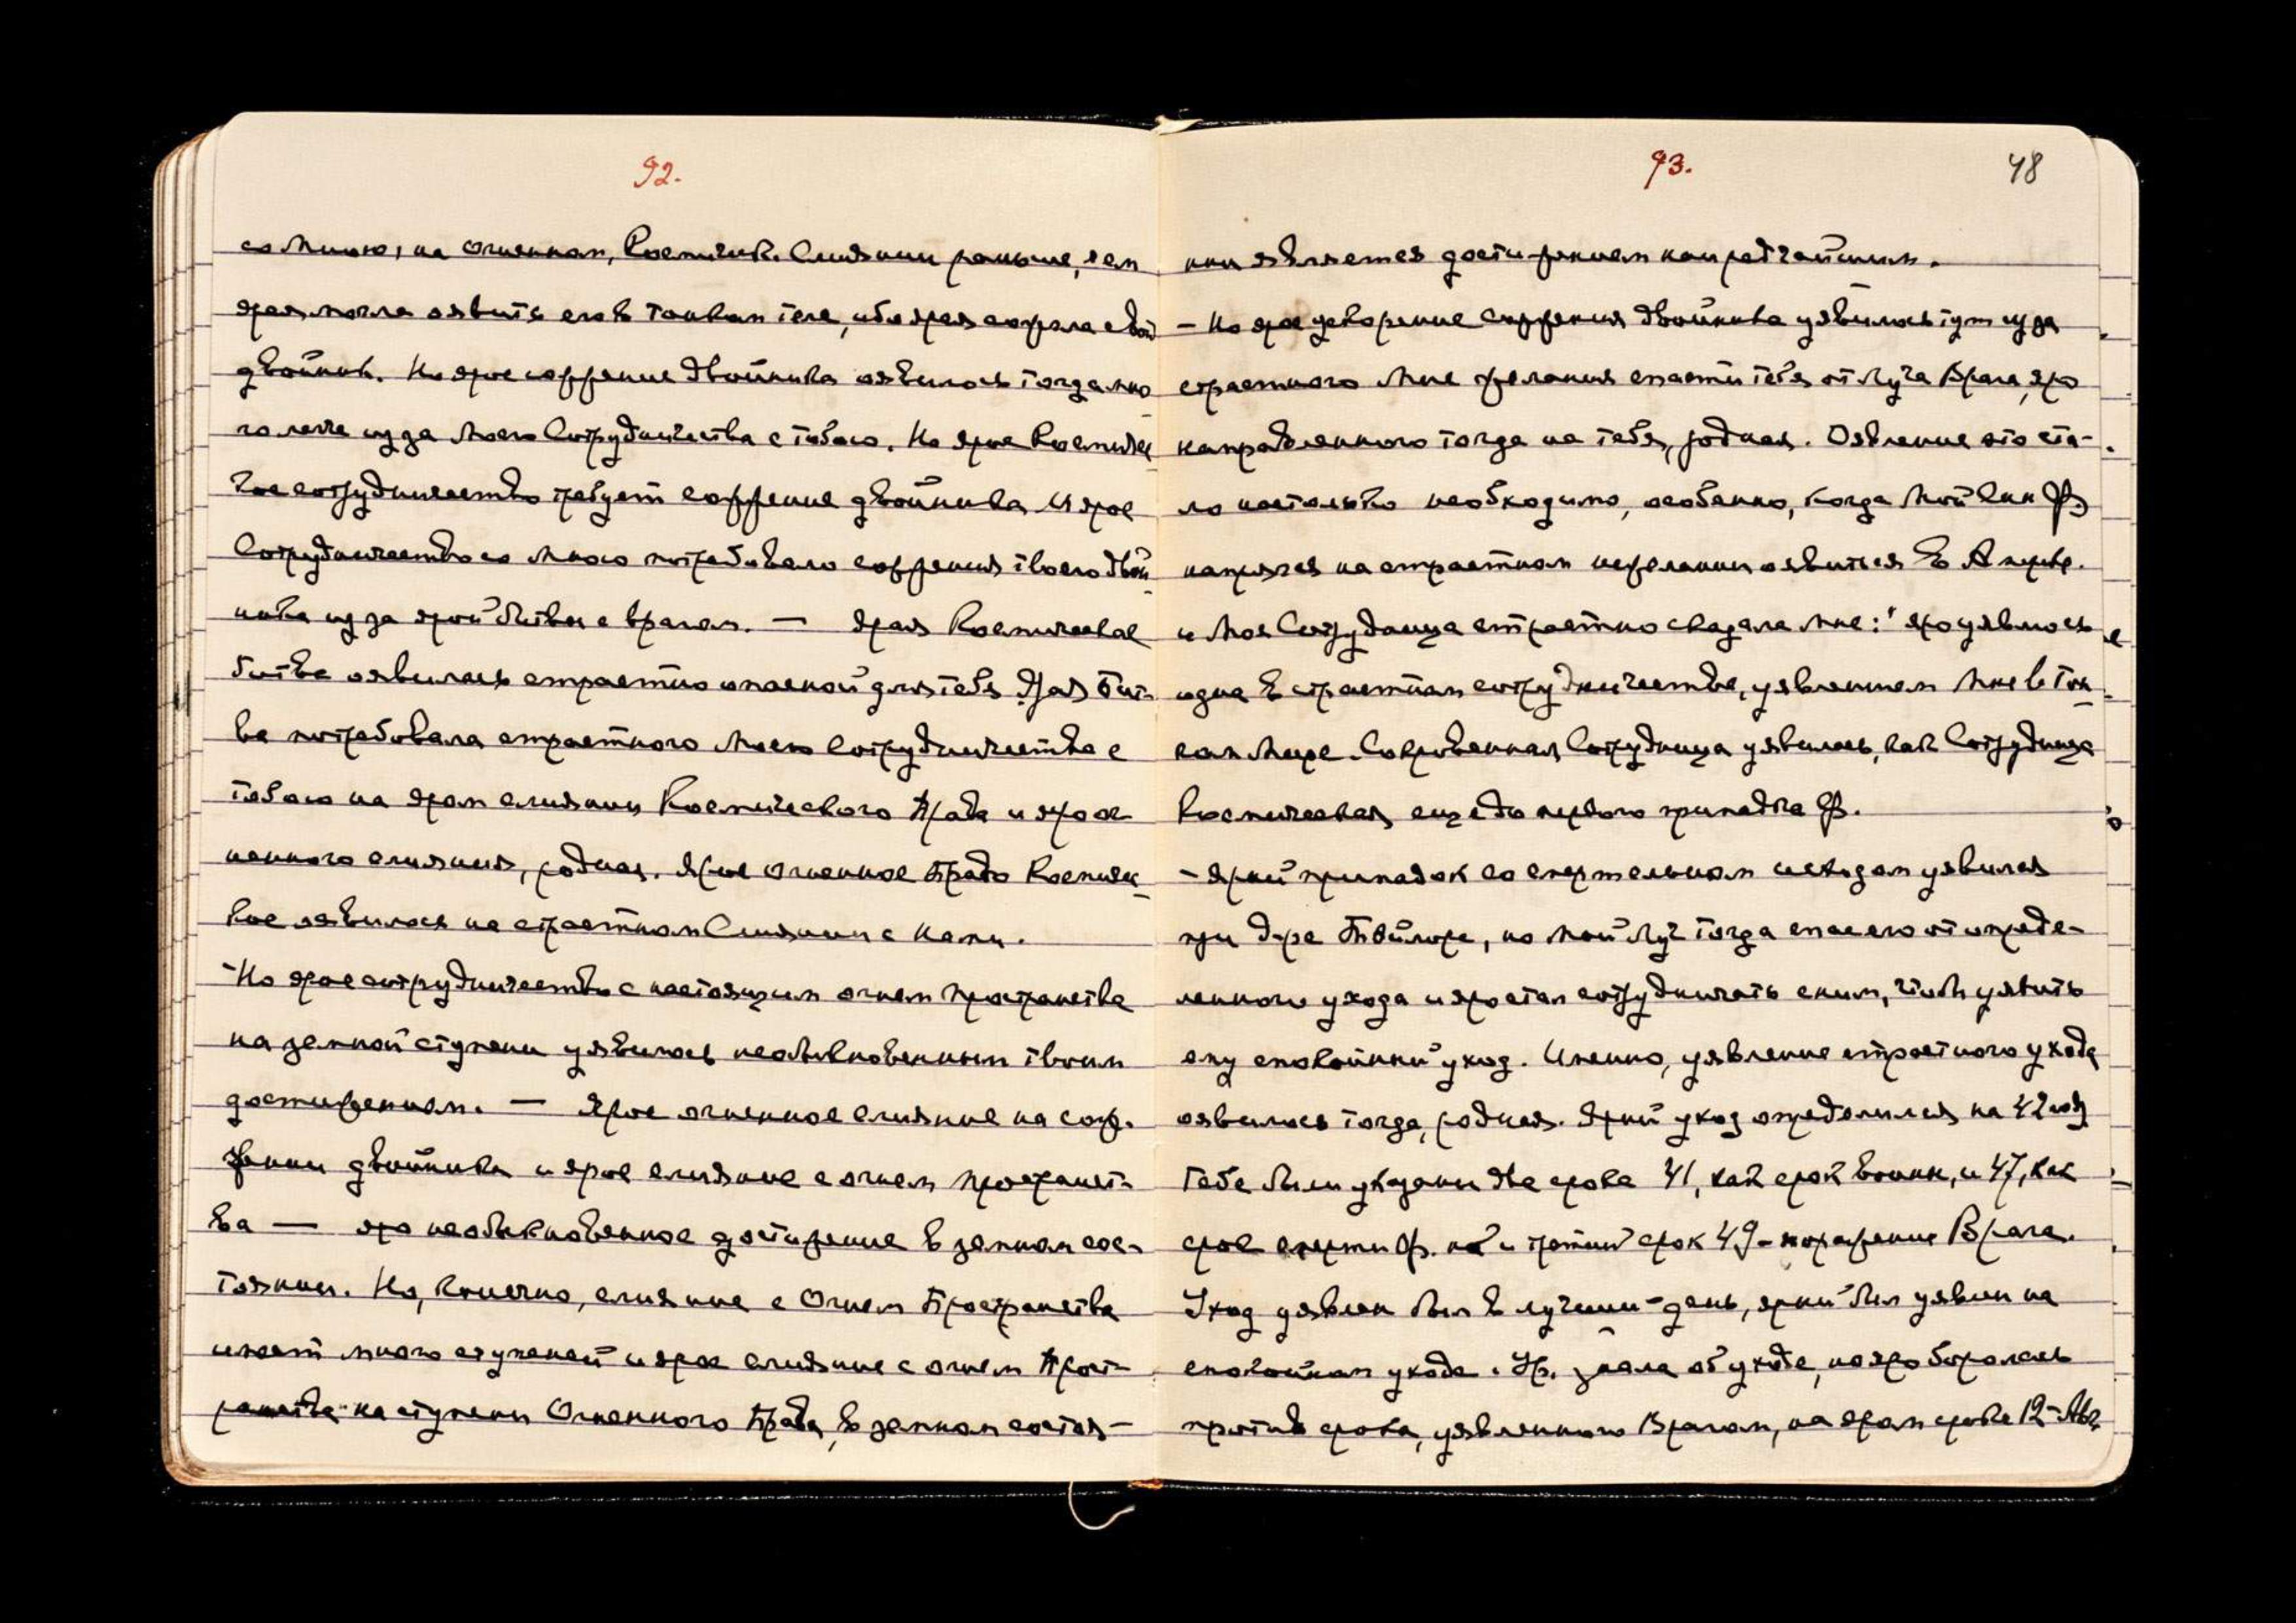 92.
со Мною, на огненном, Космическ. Слиянии раньше, чем
ярая могла явить его в тонком теле, ибо ярая сожгла свой
двойник. Но ярое сожжение двойника оявилось тогда мно
го легче из за Моего Сотрудничества с тобою. Но ярое Космиче
ское сотрудничество требует сожжение двойника. И ярое
Сотрудничество со Мною потребовало сожжения твоего двой
ника из за ярой битвы с врагом. — Ярая Космическая
битва оявилась страстно опасной для тебя. Ярая Бит-
ва потребовала страстного Моего Сотрудничества с
тобою на яром слиянии Космического Права и яро ог
ненного слияния, родная. Ярое огненное Право Космичес
кое оявилось на страстном Слиянии с Нами.
- Но ярое сотрудничество с настоящим огнем пространства
на земной ступени уявилось необыкновенным твоим
достижением. — Ярое огненное слияние на сож-
жении двойника и ярое слияние с огнем пространст-
ва — яро необыкновенное достижение в земном сос-
тоянии. Но, конечно, слияние с Огнем Пространства
имеет много ступеней и ярое слияние с огнем Прост-
ранства на ступени Огненного Права, в земном состоя-
93.
48
нии является достижением наиредчайшим.
- Но ярое ускорение сожжения двойника уявилось тут из за
страстного Мне желания спасти тебя от Луча Врага, яро
направленного тогда на тебя, родная. Оявление это ста-
ло настолько необходимо, особенно, когда Мой Сын Ф.
напрягся на страстном нежелании оявиться в Америке.
и Моя Сотрудница страстно сказала Мне: "яро уявилось
одна в страстном сотрудничестве, уявленном Мне в Тон-
ком Мире. Сокровенная Сотрудница уявилась, как Сотрудница
Космическая, еще до первого припадка Ф.
- Ярый припадок со смертельным исходом уявился
при д-ре Тэйлоре, но Мой Луч тогда спас его от опреде-
ленного ухода и яро стал сотрудничать с ним, чтобы уявить
ему спокойный уход. Именно, уявление страстного ухода
оявилось тогда, родная. Ярый уход определился на 42 год
Тебе были указаны два срока 41, как срок войны, и 47, как
срок смерти Ф. и третий срок 49 - поражение Врага.
Уход уявлен был в лучший день, ярый был уявлен на
спокойном уходе. Ур. знала об уходе, но яро боролась
против срока, уявленного Врагом, на яром сроке 12 - Авг